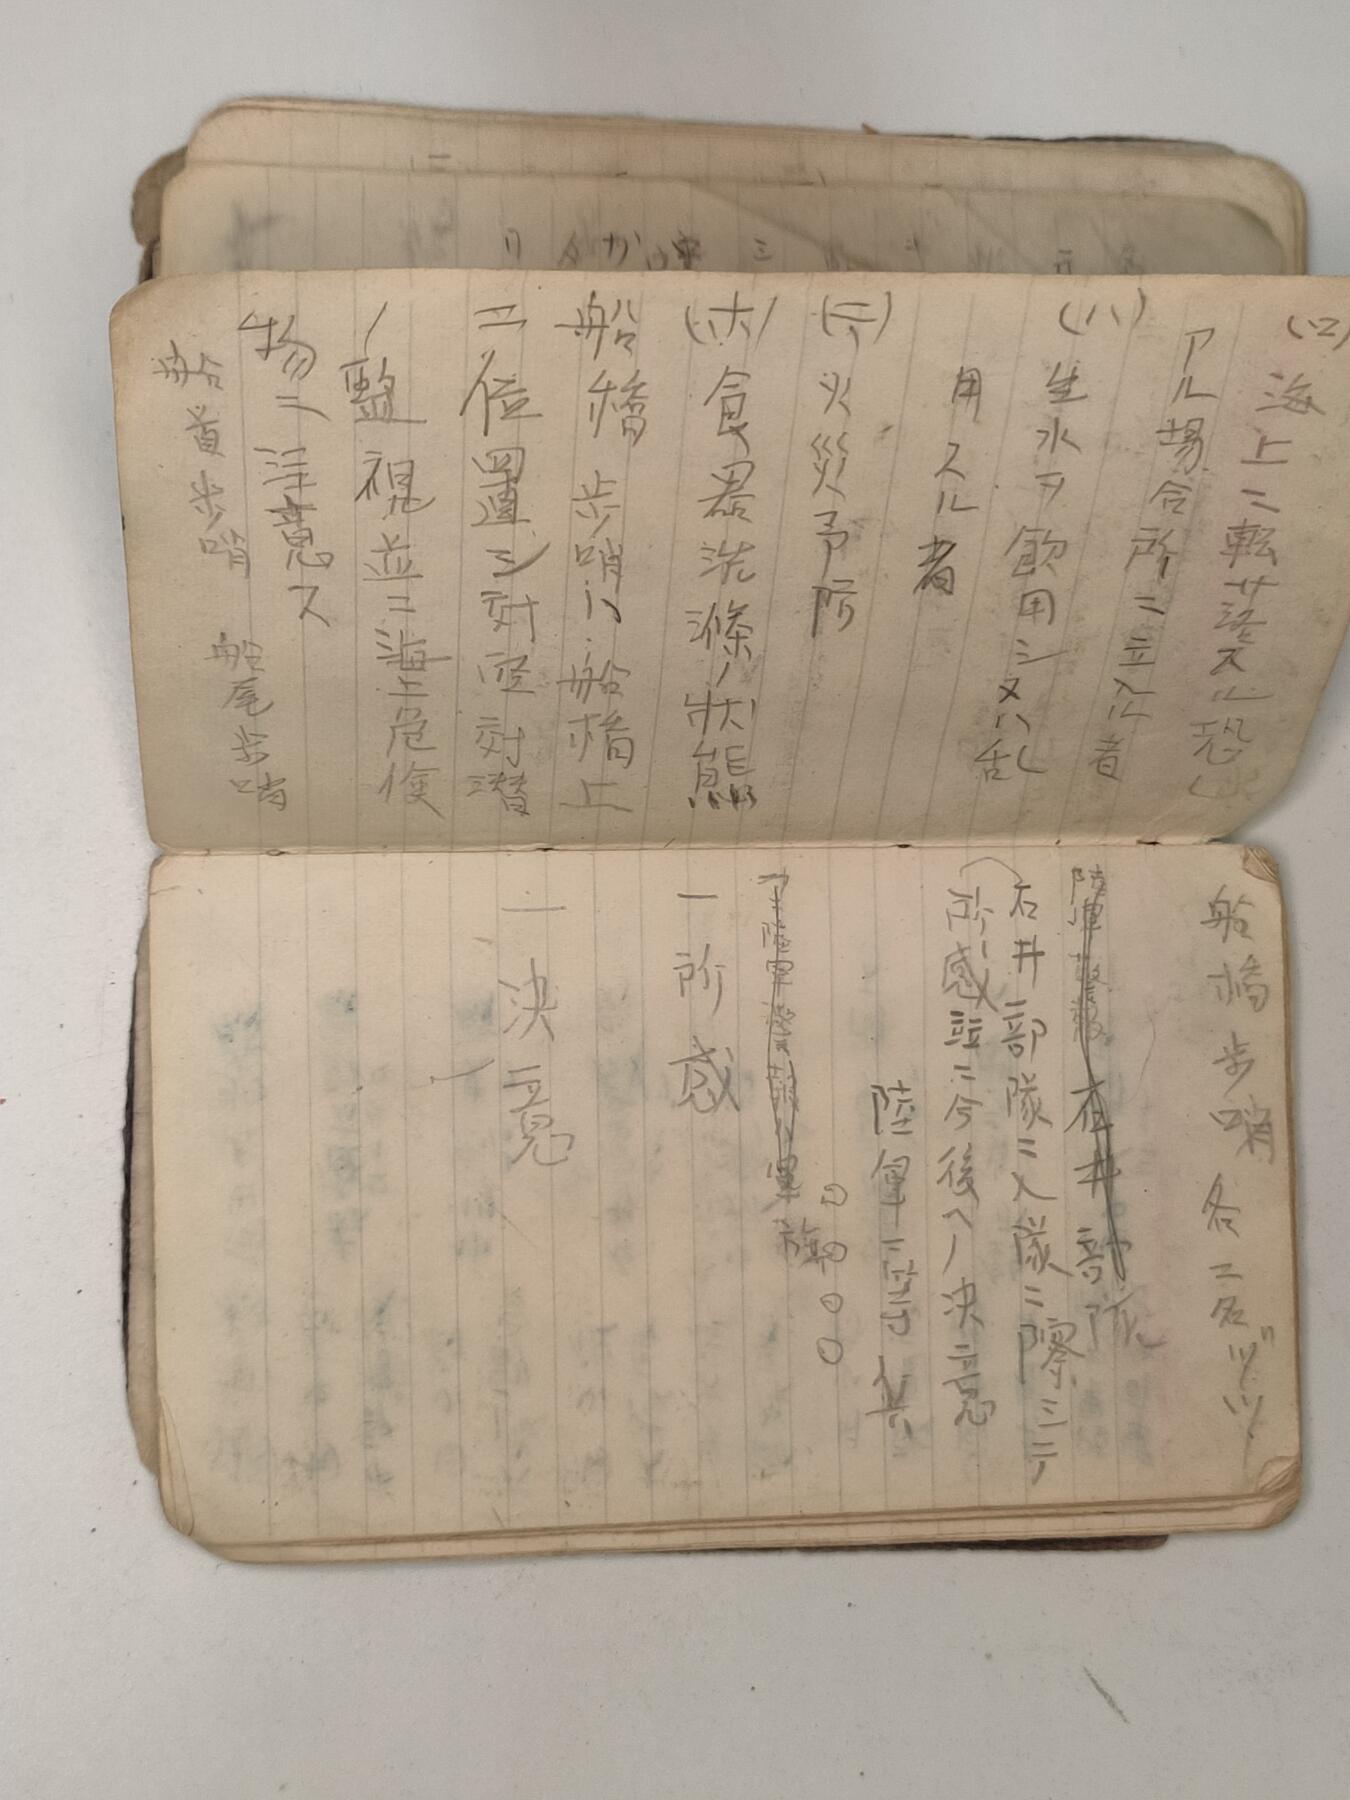 (ロ)海上ニ転落スル恐レ
アル場合所ニ立入ル者
(ハ)生水ヲ飲用シ又ハ乱
用スル者
(ニ)火災予防
(ホ)食器洗滌ノ状態
船橋歩哨ハ船橋上
ニ位置シ対空対潜
ノ監視並ニ海上危険
物ニ注意ス
船首歩哨 船尾歩哨
船橋歩哨各二名ヅツ
石井部隊ニ入隊ニ際シテノ
所感並ニ今後ヘノ決意
陸軍二等兵
〇〇〇〇
一所感
一決意